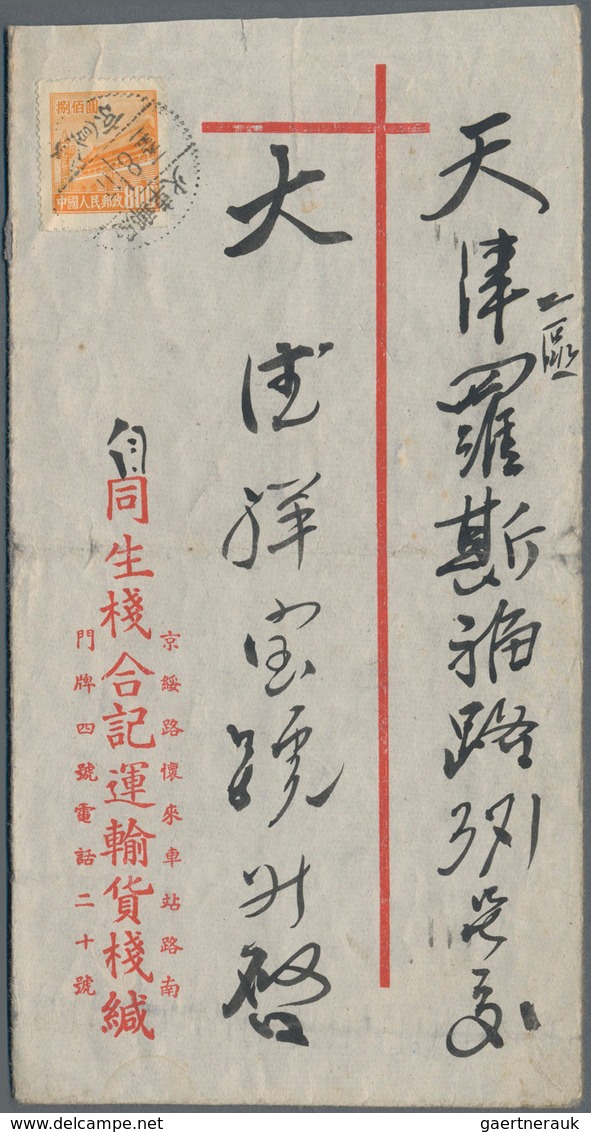 天津羅斯福路
二區
大德祥宝號
啓
自
京綏路懷來車站路南
同生棧合記運輸貨棧緘
門牌四號電話二十號
捌佰圓
中國人民郵政 800
gaertnerauk